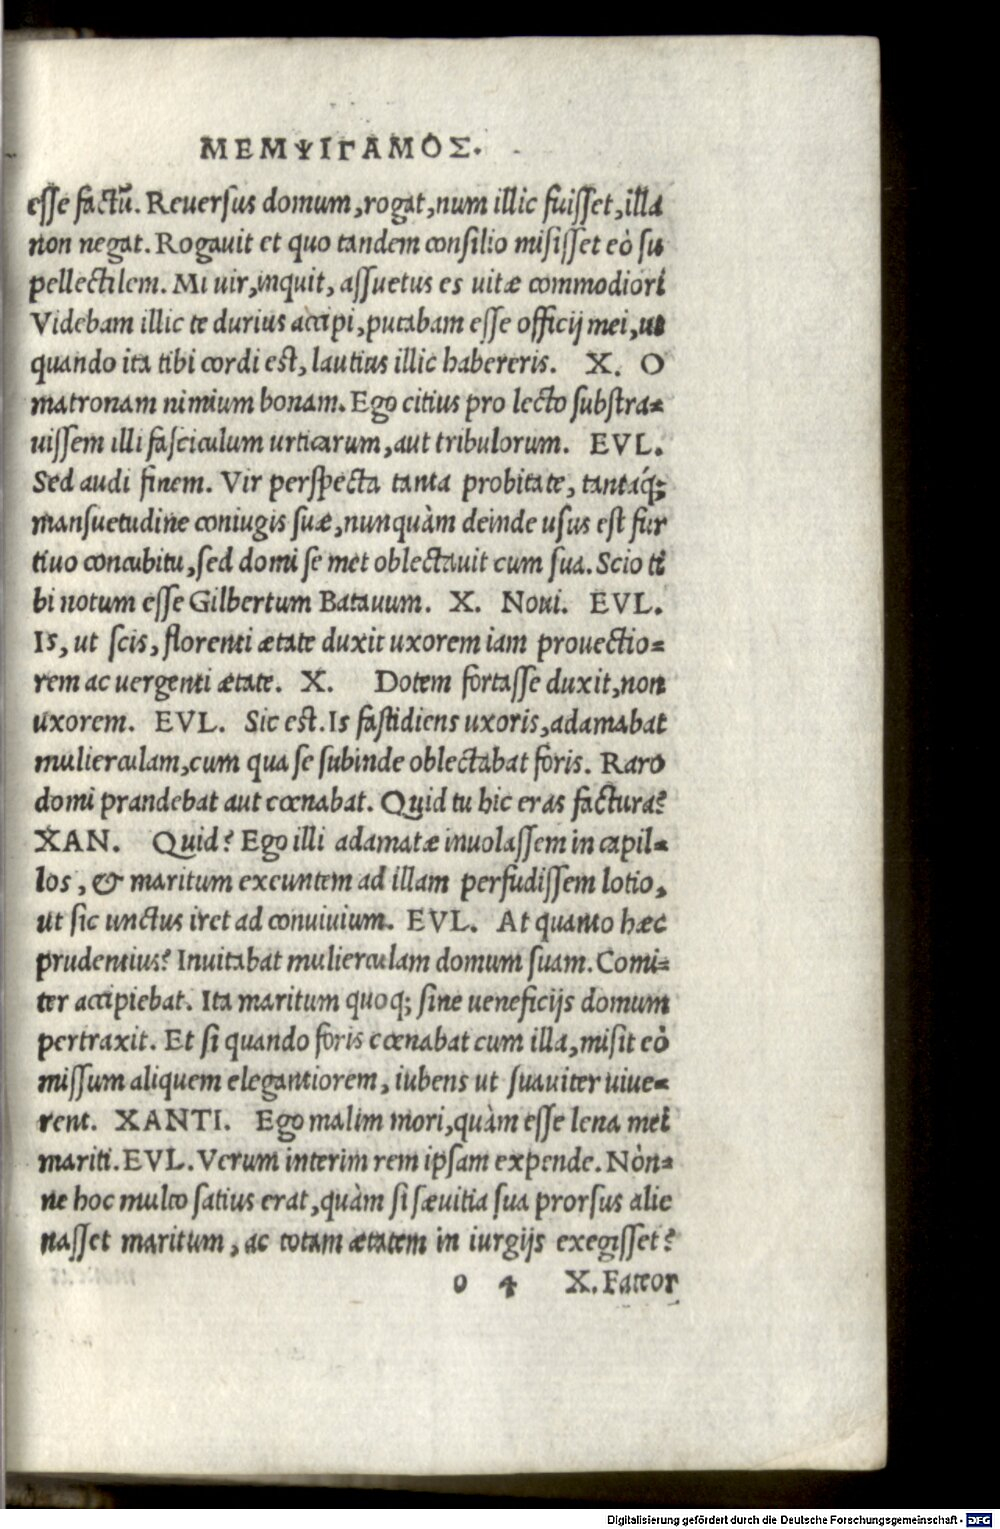 ΜΕΜΨΙΓΑΜΟΣ.
esse factū. Reuersus domum, rogat, num illic fuisset, illa
non negat. Rogauit et quo tandem consilio misisset eò su
pellectilem. Mi uir, inquit, assuetus es uitæ commodiori
Videbam illic te durius accipi, putabam esse officij mei, ut
quando ita tibi cordi est, lautius illic habereris. X. O
matronam nimium bonam. Ego citius pro lecto substra=
uissem illi fasciculum urticarum, aut tribulorum. EVL.
Sed audi finem. Vir perspecta tanta probitate, tantáq;
mansuetudine coniugis suæ, nunquàm deinde usus est fur
tiuo concubitu, sed domi se met oblectauit cum sua. Scio ti
bi notum esse Gilbertum Batauum. X. Noui. EVL.
Is, ut scis, florenti ætate duxit uxorem iam prouectio=
rem ac uergenti ætate. X. Dotem fortasse duxit, non
uxorem. EVL. Sic est. Is fastidiens uxoris, adamabat
mulierculam, cum qua se subinde oblectabat foris. Raro
domi prandebat aut cœnabat. Quid tu hic eras factura?
XAN. Quid? Ego illi adamatæ inuolassem in capil=
los, & maritum exeuntem ad illam perfudissem lotio,
ut sic unctus iret ad conuiuium. EVL. At quanto hæc
prudentius? Inuitabat mulierculam domum suam. Comi=
ter accipiebat. Ita maritum quoq; sine ueneficijs domum
pertraxit. Et si quando foris cœnabat cum illa, misit eò
missum aliquem elegantiorem, iubens ut suauiter uiue=
rent. XANTI. Ego malim mori, quàm esse lena mei
mariti. EVL. Verum interim rem ipsam expende. Nòn=
ne hoc multo satius erat, quàm si sæuitia sua prorsus alie
nasset maritum, ac totam ætatem in iurgijs exegisset?
o 4 X. Fateor
Digitalisierung gefördert durch die Deutsche Forschungsgemeinschaft - DFG